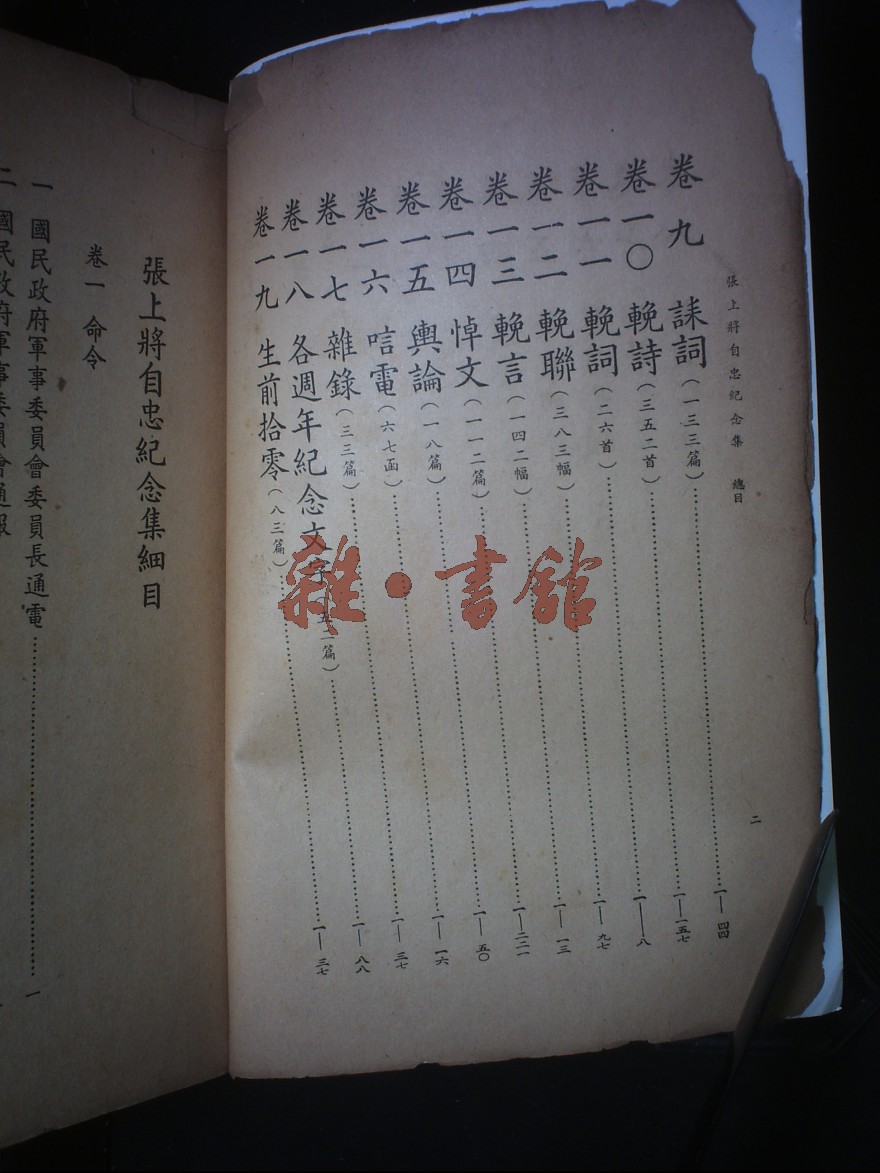 張上將自忠紀念集　總目
二
卷九　誄詞（一三三篇）……一—四四
卷一〇　輓詩（三五二首）……一—一五七
卷一一　輓詞（二六首）……一—八
卷一二　輓聯（三八三幅）……一—九七
卷一三　輓言（一四二幅）……一—一三
卷一四　悼文（一一二篇）……一—二二一
卷一五　輿論（一八篇）……一—五〇
卷一六　唁電（六七函）……一—一六
卷一七　雜錄（三三篇）……一—三七
卷一八　各週年紀念文字（篇）……一—八八
卷一九　生前拾零（八三篇）……一—三七
張上將自忠紀念集細目
卷一　命令
一　國民政府軍事委員會委員長通電……一
二　國民政府軍事委員會通報
雜·書館